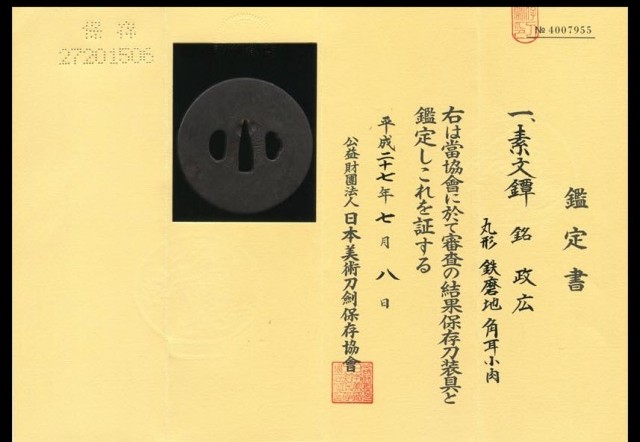 № 4007955
保存
27201506
鑑定書
一、素文鐔 銘 政広
丸形 鉄磨地 角耳小肉
右は當協會に於て審査の結果保存刀装具と
鑑定しこれを証する
平成二十七年七月八日
公益財團法人日本美術刀劍保存協會